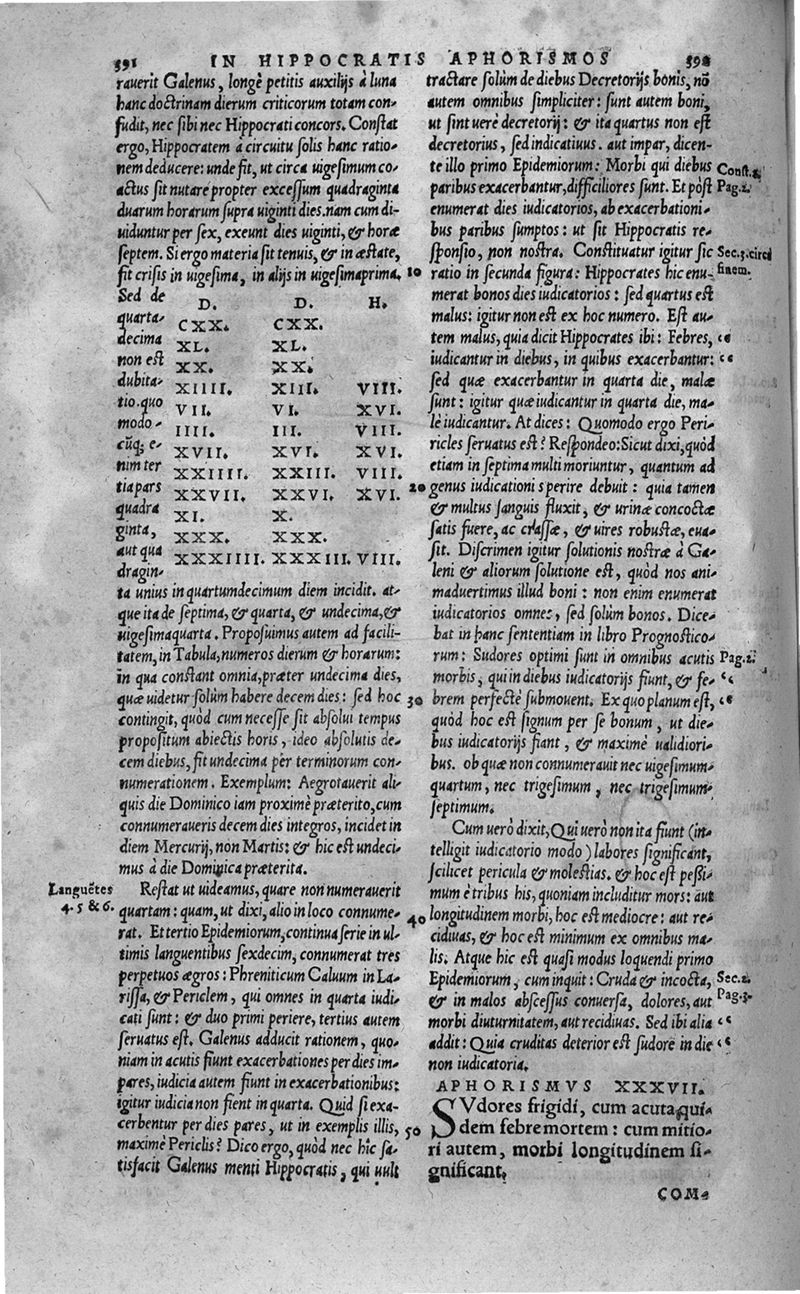 391 IN HIPPOCRATIS APHORISMOS 392
rauerit Galenus, longè petitis auxilijs à luna
hanc doctrinam dierum criticorum totam con-
fudit, nec sibi nec Hippocrati concors. Constat
ergo, Hippocratem à circuitu solis hanc ratio-
nem deducere: unde fit, ut circa uigesimum co-
actus sit nutare propter excessum quadraginta
duarum horarum supra uiginti dies. nam cum di-
uiduntur per sex, exeunt dies uiginti, & horæ
septem. Si ergo materia sit tenuis, & in æstate,
fit crisis in uigesima, in alijs in uigesimaprima. 10
Sed de
quarta-
decima
non est
dubita-
tio. quo
modo-
cũq; e-
nim ter
tia pars
quadra
ginta,
aut qua
dragin-
D. D. H.
CXX. CXX.
XL. XL.
XX. XX.
XIIII. XIII. VIII.
VII. VI. XVI.
IIII. III. VIII.
XVII. XVI. XVI.
XXIIII. XXIII. VIII.
XXVII. XXVI. XVI.
XI. X.
XXX. XXX.
XXXIIII. XXXIII. VIII.
ta unius in quartumdecimum diem incidit. at-
que ita de septima, & quarta, & undecima, &
uigesimaquarta. Proposuimus autem ad facili-
tatem, in Tabula, numeros dierum & horarum:
in qua constant omnia, præter undecima dies,
quæ uidetur solùm habere decem dies: sed hoc 30
contingit, quòd cum necesse sit absolui tempus
propositum abiectis horis, ideo absolutis de-
cem diebus, fit undecima per terminorum con-
numerationem. Exemplum: Aegrotauerit ali-
quis die Dominico iam proximè præterito, cum
connumeraueris decem dies integros, incidet in
diem Mercurij, non Martis: & hic est undeci-
mus à die Dominica præterita.
Languẽtes
4. 5 & 6.
Restat ut uideamus, quare non numerauerit
quartam: quam, ut dixi, alio in loco connume- 40
rat. Et tertio Epidemiorum, continua serie in ul-
timis languentibus sexdecim, connumerat tres
perpetuos ægros: Phreniticum Caluum in La-
rissa, & Periclem, qui omnes in quarta iudi-
cati sunt: & duo primi periere, tertius autem
seruatus est. Galenus adducit rationem, quo-
niam in acutis fiunt exacerbationes per dies im-
pares, iudicia autem fiunt in exacerbationibus:
igitur iudicia non fient in quarta. Quid si exa-
cerbentur per dies pares, ut in exemplis illis, 50
maximè Periclis? Dico ergo, quòd nec hîc sa-
tisfacit Galenus menti Hippocratis, qui uult
tractare solùm de diebus Decretorijs bonis, nõ
autem omnibus simpliciter: sunt autem boni,
ut sint uerè decretorij: & ita quartus non est
decretorius, sed indicatiuus. aut impar, dicen-
te illo primo Epidemiorum: Morbi qui diebus
paribus exacerbantur, difficiliores sunt. Et pòst
Const. 2.
Pag. 2.
enumerat dies iudicatorios, ab exacerbationi-
bus paribus sumptos: ut sit Hippocratis re-
sponsio, non nostra. Constituatur igitur sic
Sec. 3. circa
finem.
ratio in secunda figura: Hippocrates hic enu-
merat bonos dies iudicatorios: sed quartus est
malus: igitur non est ex hoc numero. Est au-
tem malus, quia dicit Hippocrates ibi: Febres, “
iudicantur in diebus, in quibus exacerbantur: “
sed quæ exacerbantur in quarta die, malæ
sunt: igitur quæ iudicantur in quarta die, ma-
lè iudicantur. At dices: Quomodo ergo Peri-
ricles seruatus est? Respondeo: Sicut dixi, quòd
etiam in septima multi moriuntur, quantum ad
20 genus iudicationis perire debuit: quia tamen
& multus sanguis fluxit, & urinæ concoctæ
satis fuere, ac crassæ, & uires robustæ, eua-
sit. Discrimen igitur solutionis nostræ à Ga-
leni & aliorum solutione est, quòd nos ani-
maduertimus illud boni: non enim enumerat
iudicatorios omnes, sed solùm bonos. Dice-
bat in hanc sententiam in libro Prognostico-
rum: Sudores optimi sunt in omnibus acutis
Pag. 2.
morbis, qui in diebus iudicatorijs fiunt, & fe- “
brem perfectè submouent. Ex quo planum est, “
quòd hoc est signum per se bonum, ut die-
bus iudicatorijs fiant, & maximè ualidiori-
bus. ob quæ non connumerauit nec uigesimum
quartum, nec trigesimum, nec trigesimum
septimum.
Cum uerò dixit, Qui uerò non ita fiunt (in-
telligit iudicatorio modo) labores significant,
scilicet pericula & molestias. & hoc est pessi-
mum è tribus his, quoniam includitur mors: aut
longitudinem morbi, hoc est mediocre: aut re-
cidiuas, & hoc est minimum ex omnibus ma-
lis. Atque hic est quasi modus loquendi primo
Epidemiorum, cum inquit: Cruda & incocta,
Sec. 2.
Pag. 3.
& in malos abscessus conuersa, dolores, aut
morbi diuturnitatem, aut recidiuas. Sed ibi alia “
addit: Quia cruditas deterior est sudore in die “
non iudicatoria.
APHORISMVS XXXVII.
SVdores frigidi, cum acuta qui-
dem febre mortem: cum mitio-
ri autem, morbi longitudinem si-
gnificant.
COM-